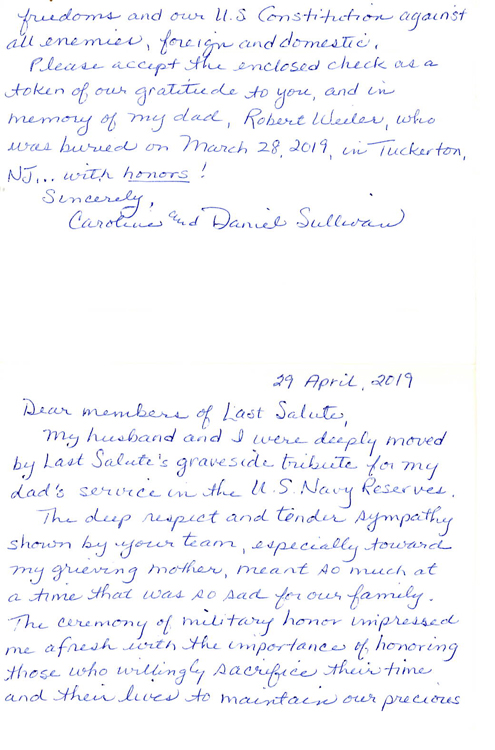 freedoms and our U.S Constitution against
all enemies, foreign and domestic.
Please accept the enclosed check as a
token of our gratitude to you, and in
memory of my dad, Robert Weiler, who
was buried on March 28, 2019, in Tuckerton,
NJ... with honors!
Sincerely,
Caroline and Daniel Sullivan
29 April, 2019
Dear members of Last Salute,
My husband and I were deeply moved
by Last Salute's graveside tribute for my
dad's service in the U.S. Navy Reserves.
The deep respect and tender sympathy
shown by your team, especially toward
my grieving mother, meant so much at
a time that was so sad for our family.
The ceremony of military honor impressed
me afresh with the importance of honoring
those who willingly sacrifice their time
and their lives to maintain our precious